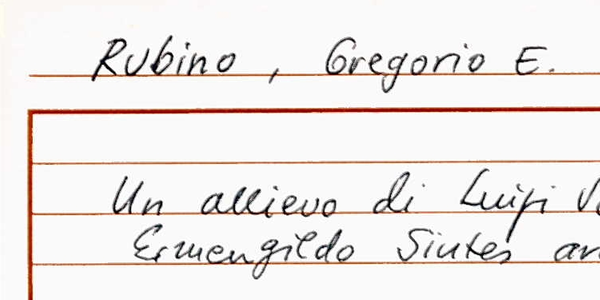 Rubino, Gregorio E.
Un allievo di Luigi
Ermengildo Sintes